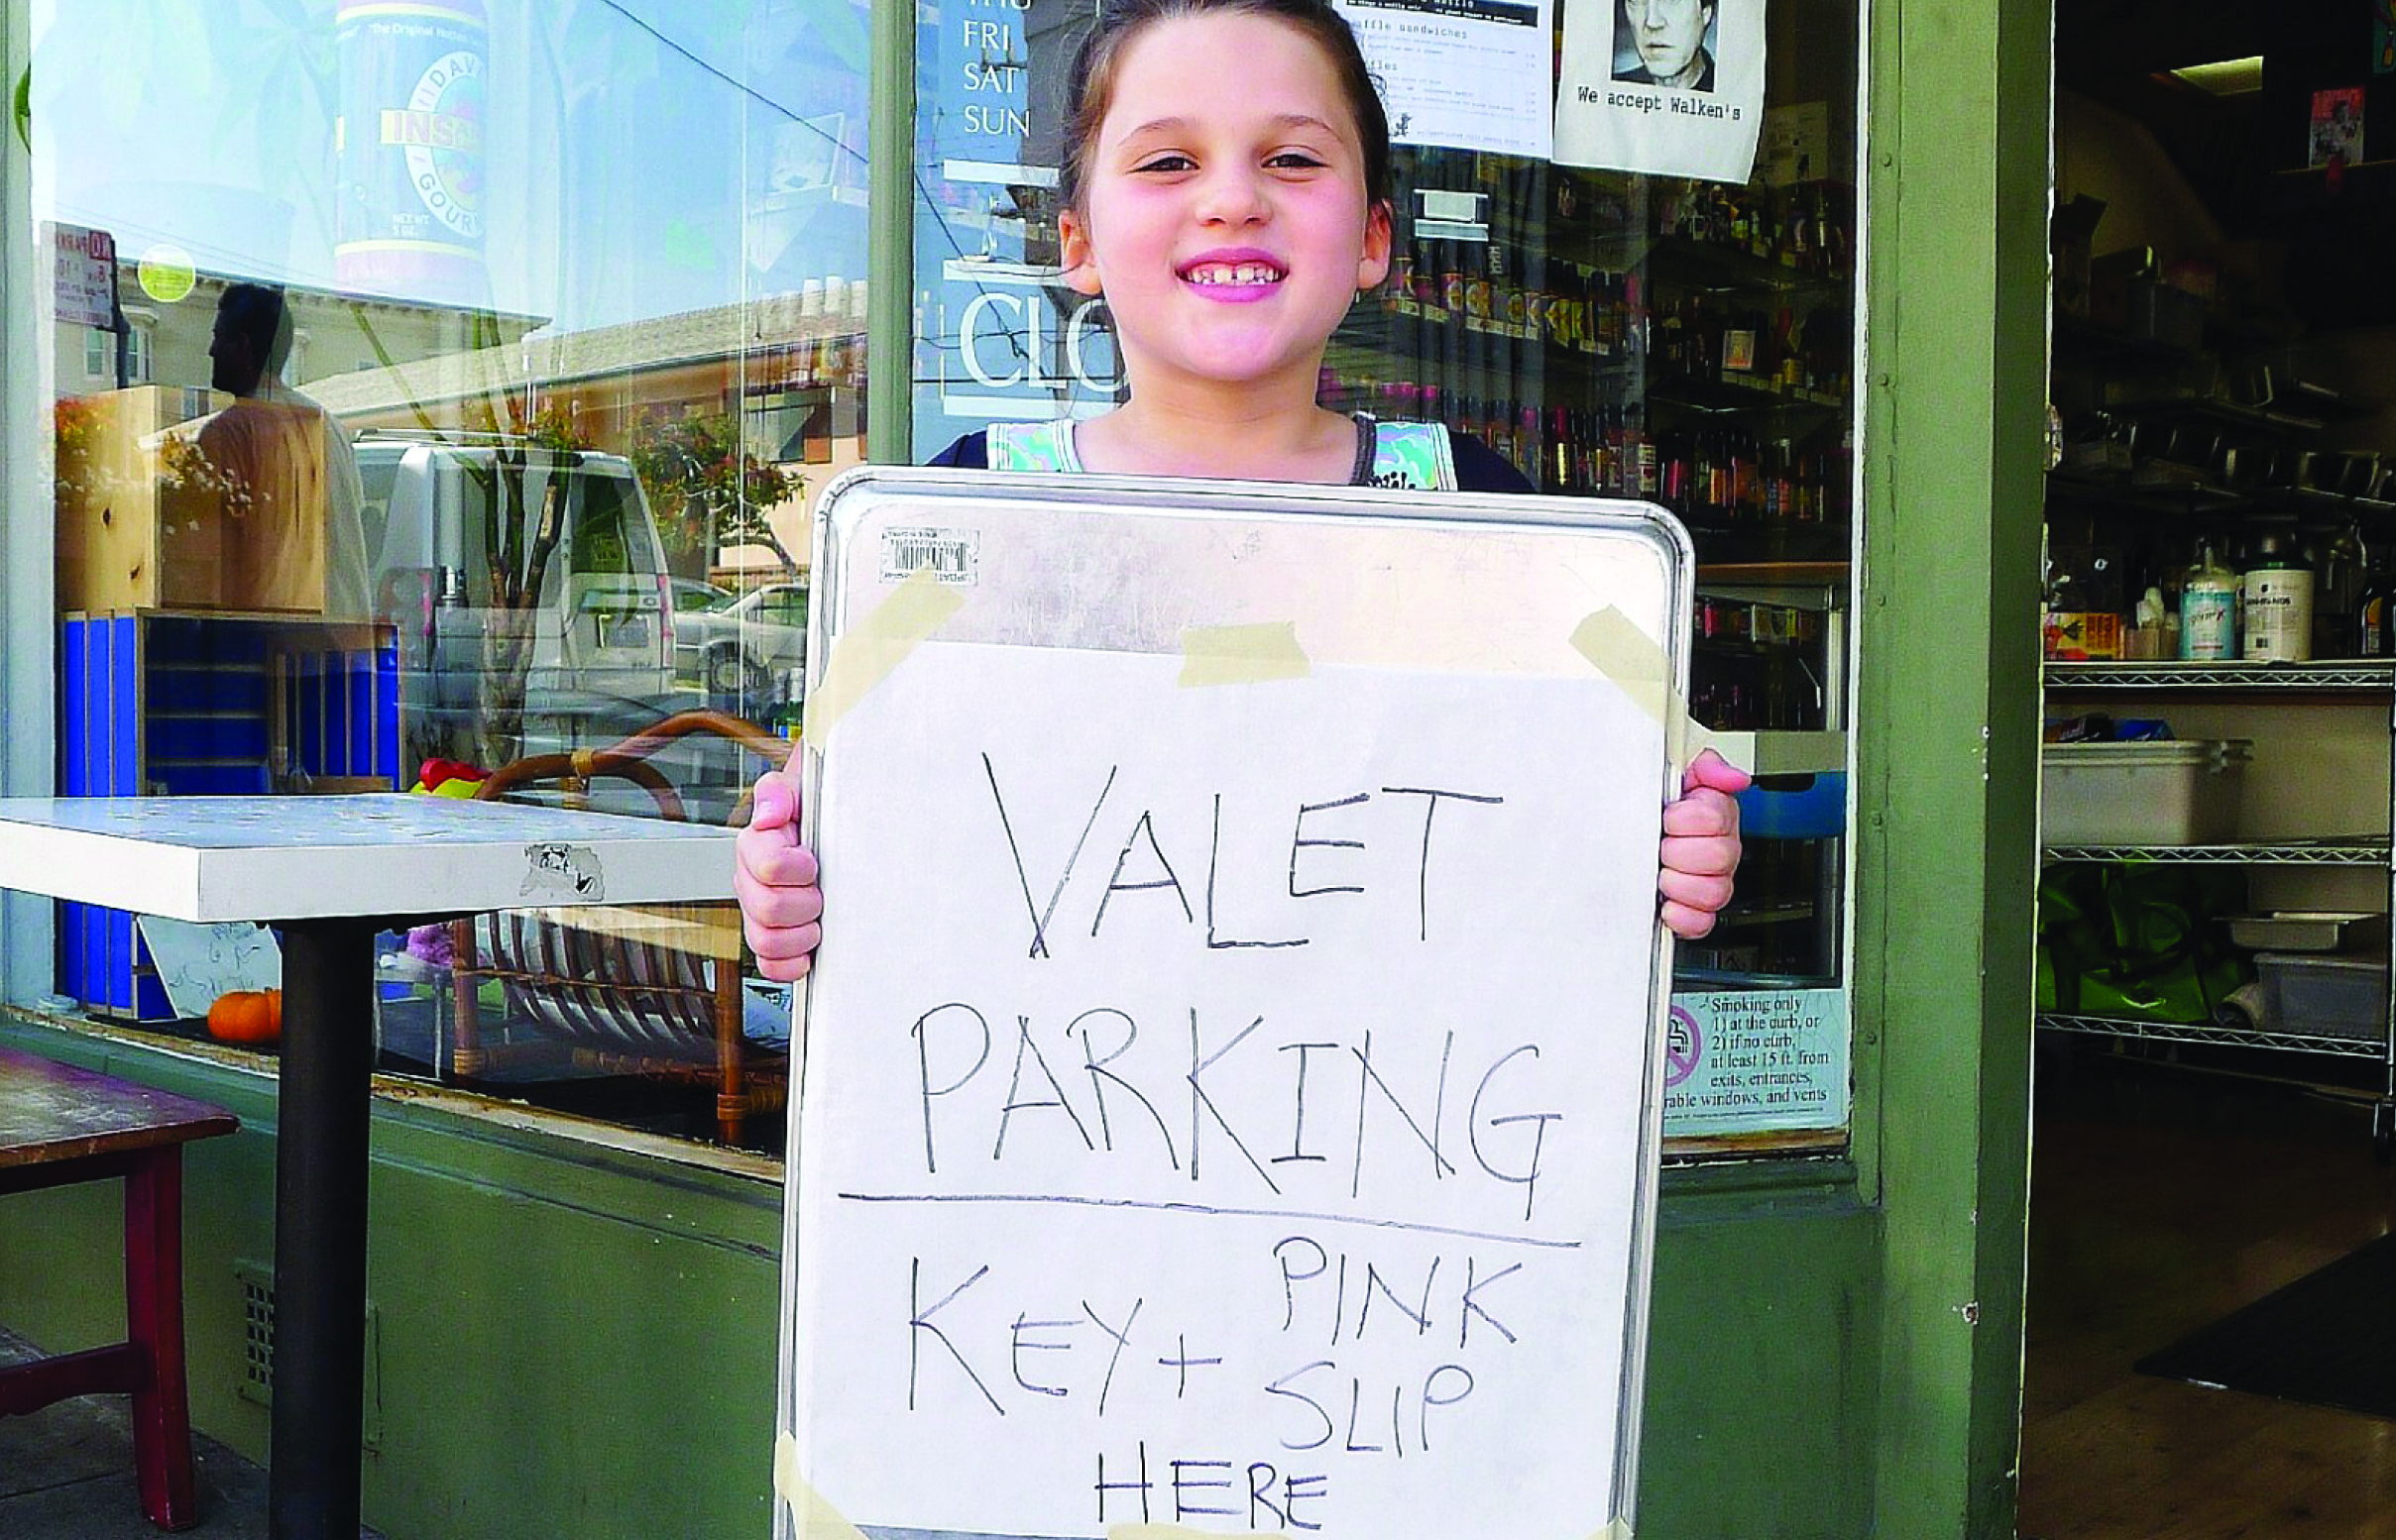 "The Original Hottest
DAVE
INSA
GOUR
NET WT
FRI
SAT
SUN
CLO
waffle sandwiches
We accept Walken's
VALET
PARKING
KEY + PINK
SLIP
HERE
Smoking only
1) at the curb, or
2) if no curb,
at least 15 ft. from
exits, entrances,
rable windows, and vents